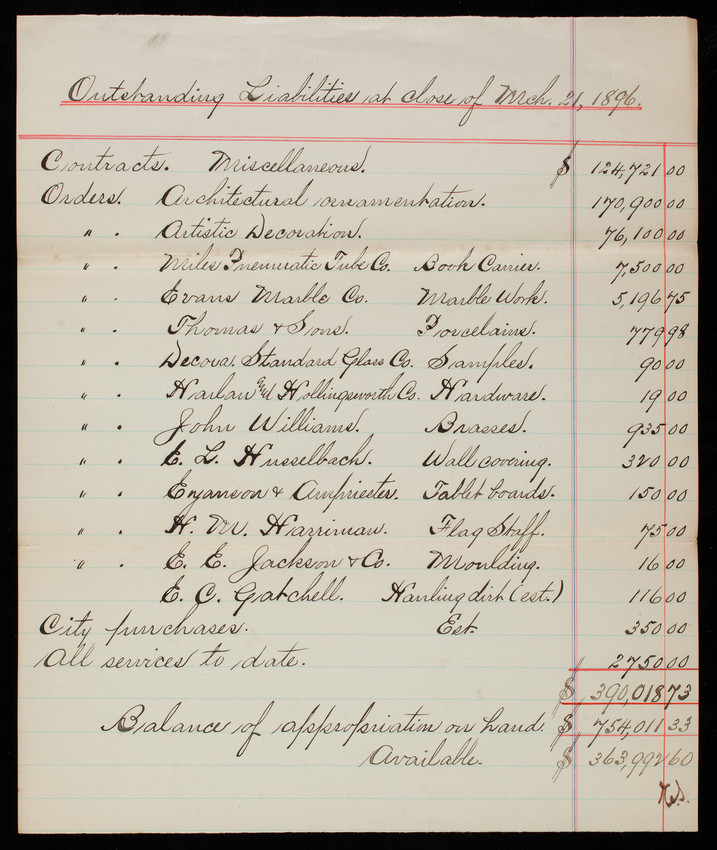 Outstanding Liabilities at close of Mch. 21, 1896.
Contracts. Miscellaneous. $ 124,721 00
Orders. Architectural ornamentation. 170,900 00
" . Artistic Decoration. 76,100 00
" . Miles Pneumatic Tube Co. Book Carrier. 7,500 00
" . Evans Marble Co. Marble Work. 5,196 75
" . Thomas & Sons. Porcelains. 779 98
" . Decora. Standard Glass Co. Samples. 90 00
" . Harlan and Hollingsworth Co. Hardware. 19 00
" . John Williams. Brasses. 935 00
" . E. L. Husselbach. Wall covering. 320 00
" . Tablet boards. 150 00
" . H. M. Harriman. Flag Staff. 75 00
" . E. E. Jackson & Co. Moulding. 16 00
E. C. Gatchell. Hauling dirt (est.) 116 00
City purchases. Est. 350 00
All services to date. 2750 00
$ 390,018 73
Balance of appropriation on hand. $ 754,011 33
Available. $ 363,992 60